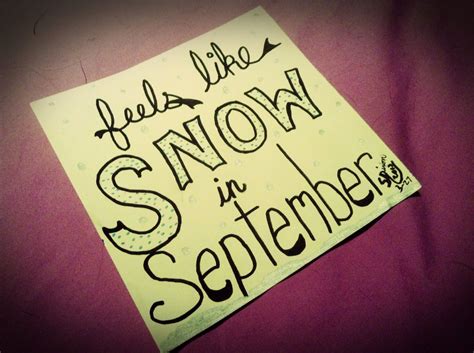 feels like
SNOW
in
September.